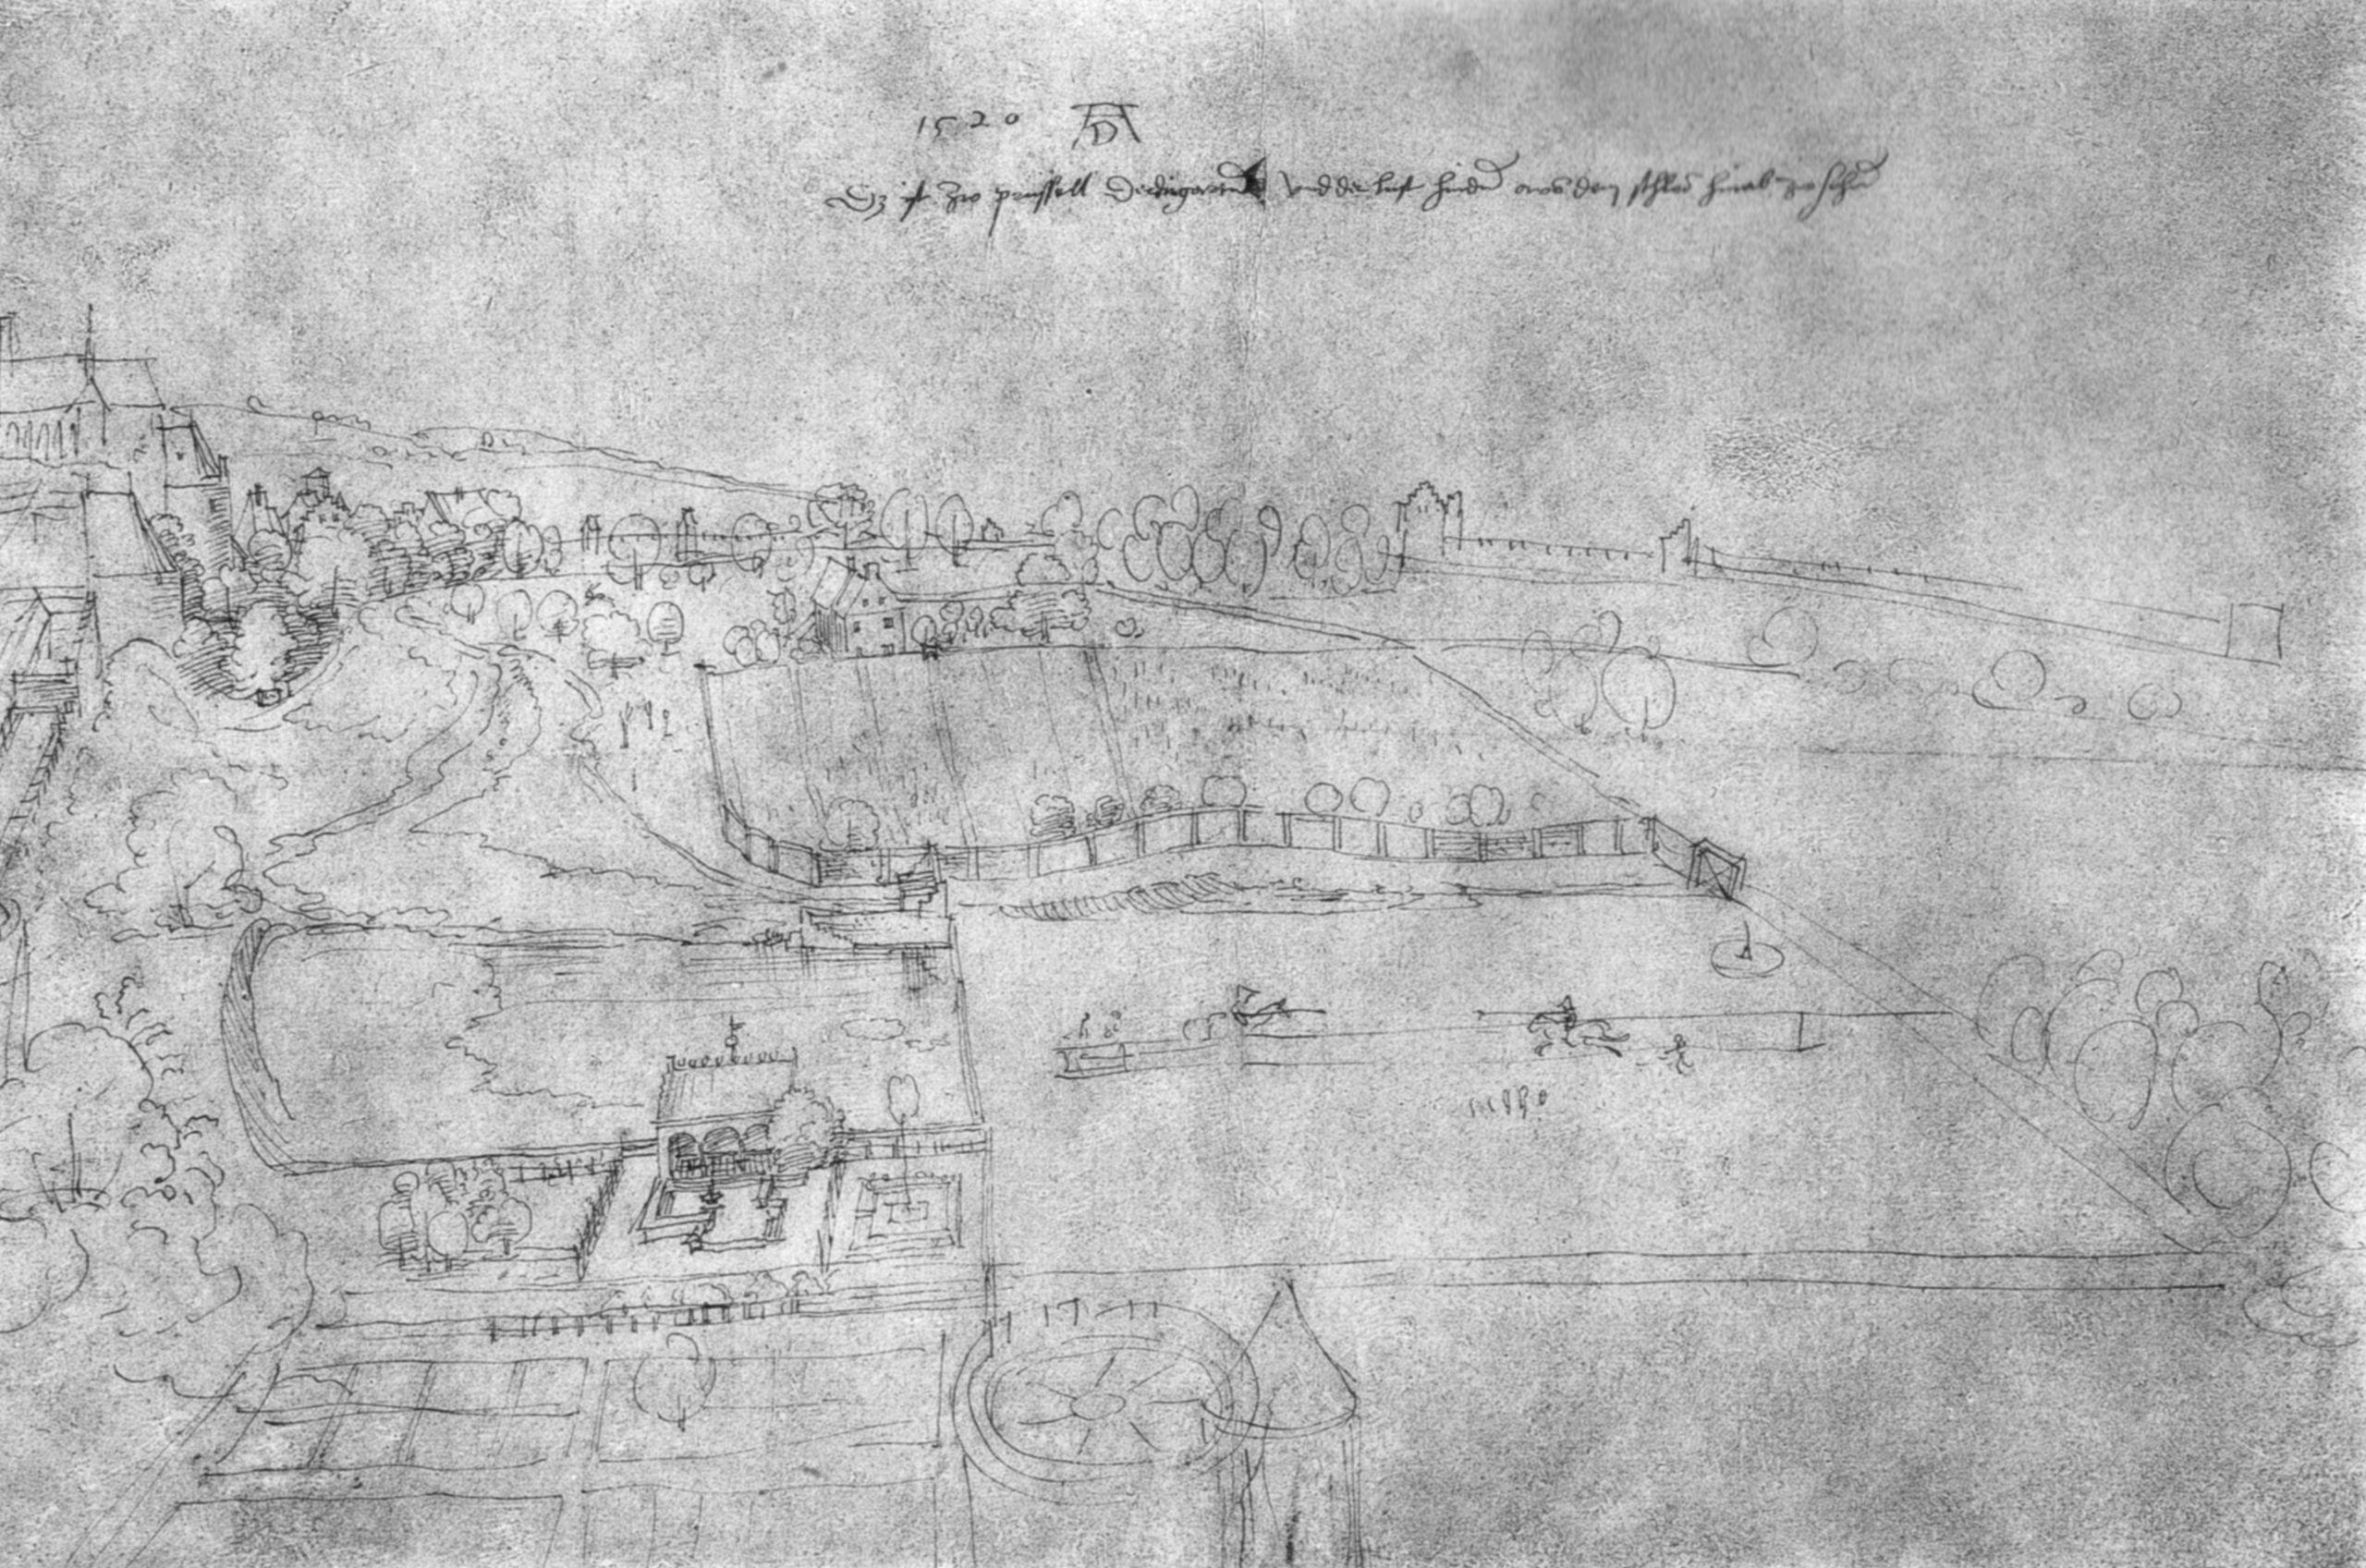 1520 AD
Dz ist zw prüssell der diergartn vnd der lust hindn aws dem schlos hinab zw sehn